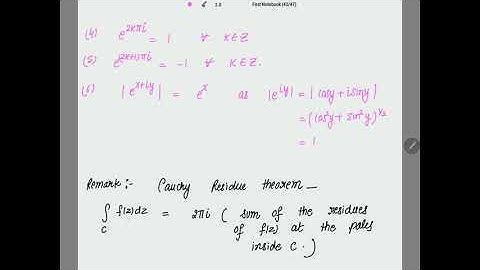 3.8 First Notebook (43/47)
(4) e^{2kπi} = 1 ∀ k∈Z
(5) e^{(2k+1)πi} = -1 ∀ k∈Z.
(6) |e^{x+iy}| = e^x as |e^{iy}| = |cosy + isiny|
= (cos²y + sin²y)^{1/2}
= 1
Remark:- Cauchy Residue theorem –
∫_C f(z)dz = 2πi ( sum of the residues
of f(z) at the poles
inside C.)